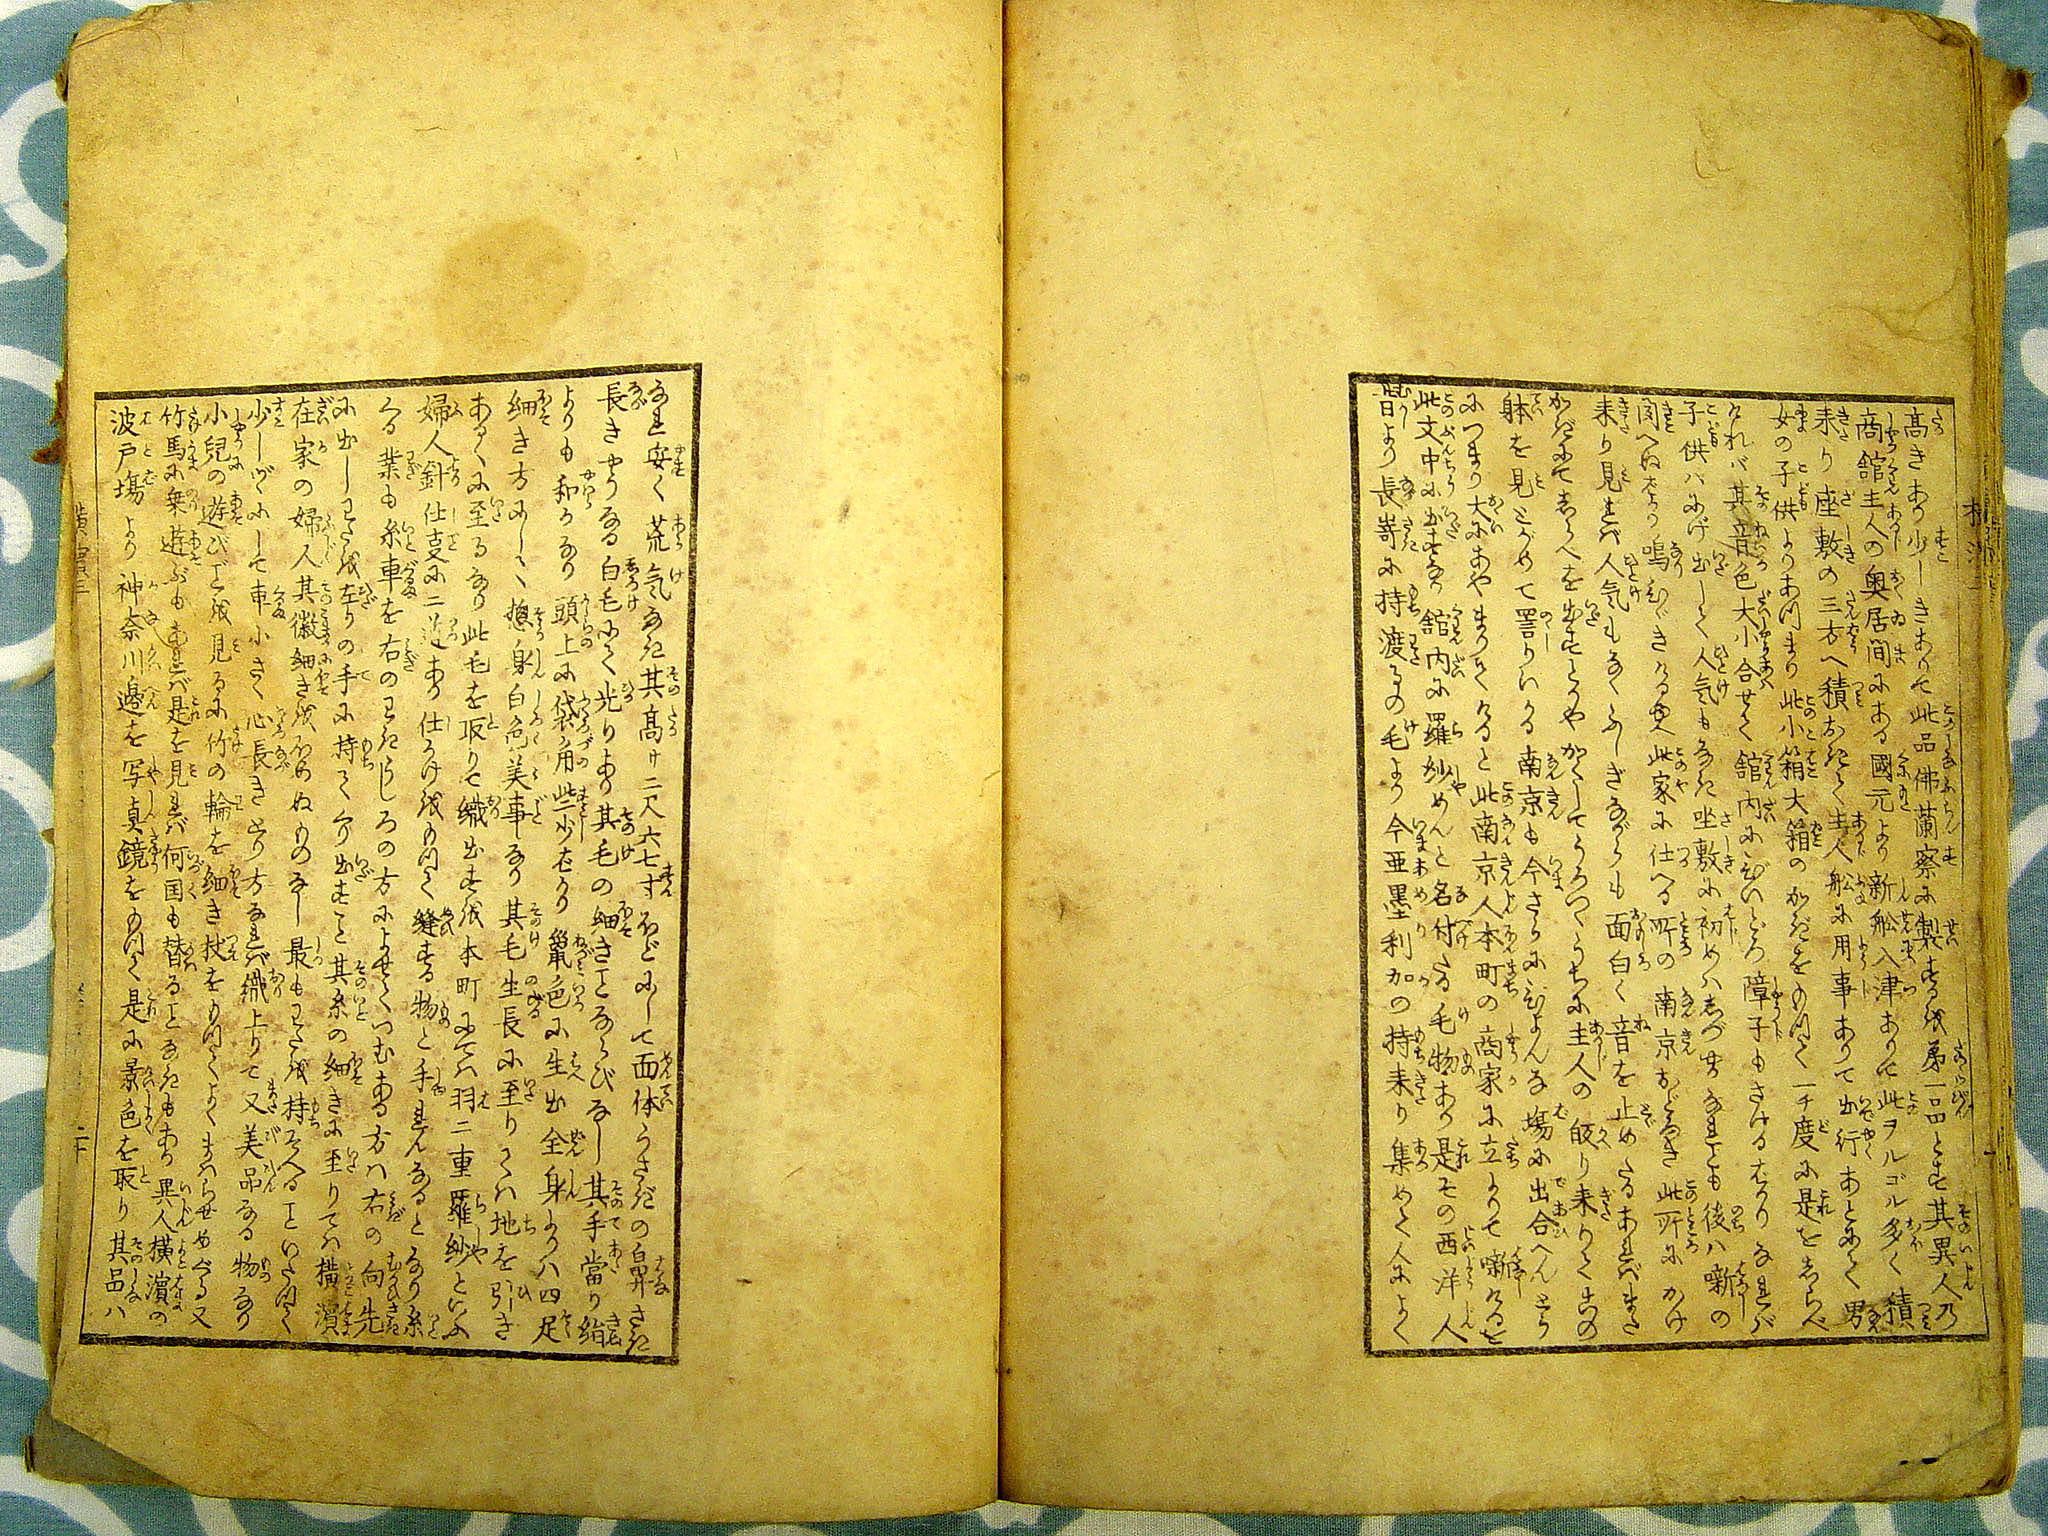 高きあり少しきありて此品佛蘭察に製するを第一品とす其異人乃
商舘主人の奥居間にある國元より新舩入津ありて此ヲルゴル多く積
来り座敷の三方へ積おきて主人舩に用事ありて出行あとにて男
女の子供よりあつまり此小箱大箱のかぎをもつて一チ度に是をしらべ
けれバ其音色大小合せて舘内にひゞいどろ障子もさけるなりなれバ
子供バにげ出して人気もなき坐敷に初めハしづかなれども後ハ噺の
聞へぬなり鳴ひゞきける此家に仕へる所の南京おどろき此所にかけ
来り見れバ人気もなくふしぎながらも面白く音を止めたるあれバまた
かぎにてしらべを出すとかやかくしてうつてうちに主人の皈り来りて此
躰を見とがめて詈りいる南京も今さらにひよんな場に出合へんとう
につまり大にあやまりけると此南京人本町の商家に立よりて噺けるを
此文中に出せり舘内に羅紗めんと名付たる毛物あり是その西洋人
昔より長嵜に持渡るの毛より今亜墨利加の持来り集めて人によく
なれ安く荒気なき其高ケ二尺六七寸ほどにして面体うさぎの鼻さき
長きやうなる白毛にて光りあり其毛の細きことならびなし其手當り絹
よりも和らなり頭上に袋角些少在り鼠色に生出全身より八四足
細き方にして惣身白色美事なり其毛生長に至りてハ地を引き
あるくに至るなり此毛を取りて織出すを本町にてハ羽二重羅紗といふ
婦人針仕支に二道あり仕かけをもつて縫する物と手まんなると なり糸
くる業も糸車を右のわきうしろの方によせてつむある方ハ右の向先
に出しわたを左りの手に持てくり出すこと其糸の細きに至りてハ横濱
在家の婦人其微細きをほめぬものなし最もわたを持そへることいたつて
少しづゝにして車小さく心長きとり方なれバ織上りて又美品なる物なり
小兒の遊びごとを見るに竹の輪を細き杖をもつてよくまハらせめぐる又
竹馬に乗遊ぶもあれバ是を見れバ何国も替ることなきもあり異人横濱の
波戸塲より神奈川邊を写真鏡をもつて是に景色を取り其品ハ